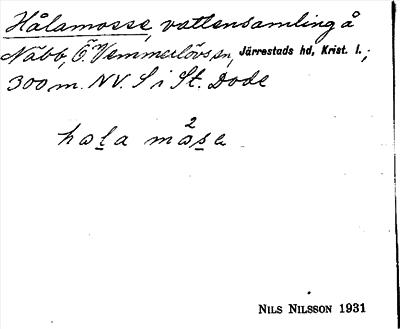 Hålamosse, vattensamling å
Näbb, Ö. Vemmerlövs sn, Järrestads hd, Krist. l.;
300 m. NV. S i St. Dode
hala ²mosa
NILS NILSSON 1931